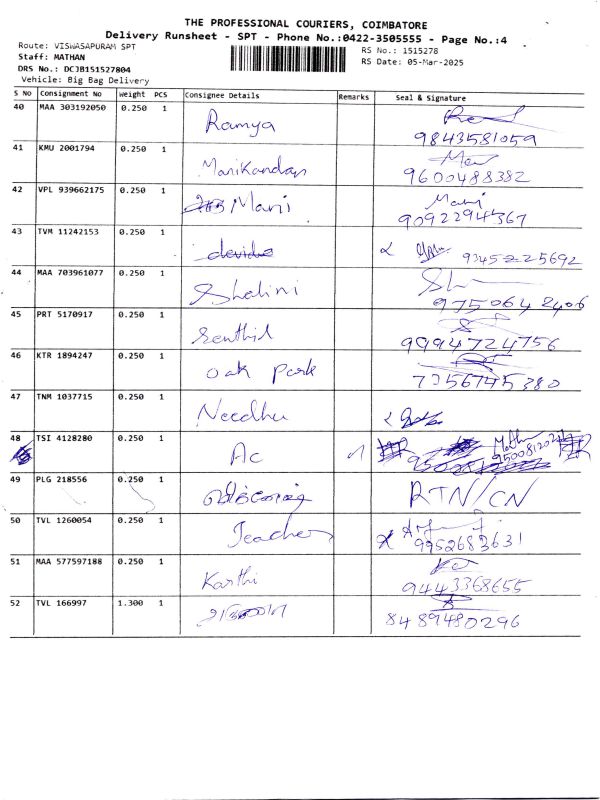 THE PROFESSIONAL COURIERS, COIMBATORE
Delivery Runsheet - SPT - Phone No.:0422-3505555 - Page No.:4
Route: VISWASAPURAM SPT
RS No.: 1515278
Staff: MATHAN
RS Date: 05-Mar-2025
DRS No.: DCJB151527804
Vehicle: Big Bag Delivery
S No Consignment No Weight PCS Consignee Details Remarks Seal & Signature
40 MAA 303192050 0.250 1 Ramya
9843581059
41 KMU 2001794 0.250 1 Manikandan
9600488382
42 VPL 939662175 0.250 1 Mani Mani
9092294367
43 TVM 11242153 0.250 1 9345225692
44 MAA 703961077 0.250 1 Shalini
9750642406
45 PRT 5170917 0.250 1 Senthil
9994724756
46 KTR 1894247 0.250 1 Oak Park
7356745380
47 TNM 1037715 0.250 1 Needhu
48 TSI 4128280 0.250 1 AC
49 PLG 218556 0.250 1 RTN/CN
50 TVL 1260054 0.250 1 Teacher
9952683631
51 MAA 577597188 0.250 1 Karthi
9443368655
52 TVL 166997 1.300 1
8489480296